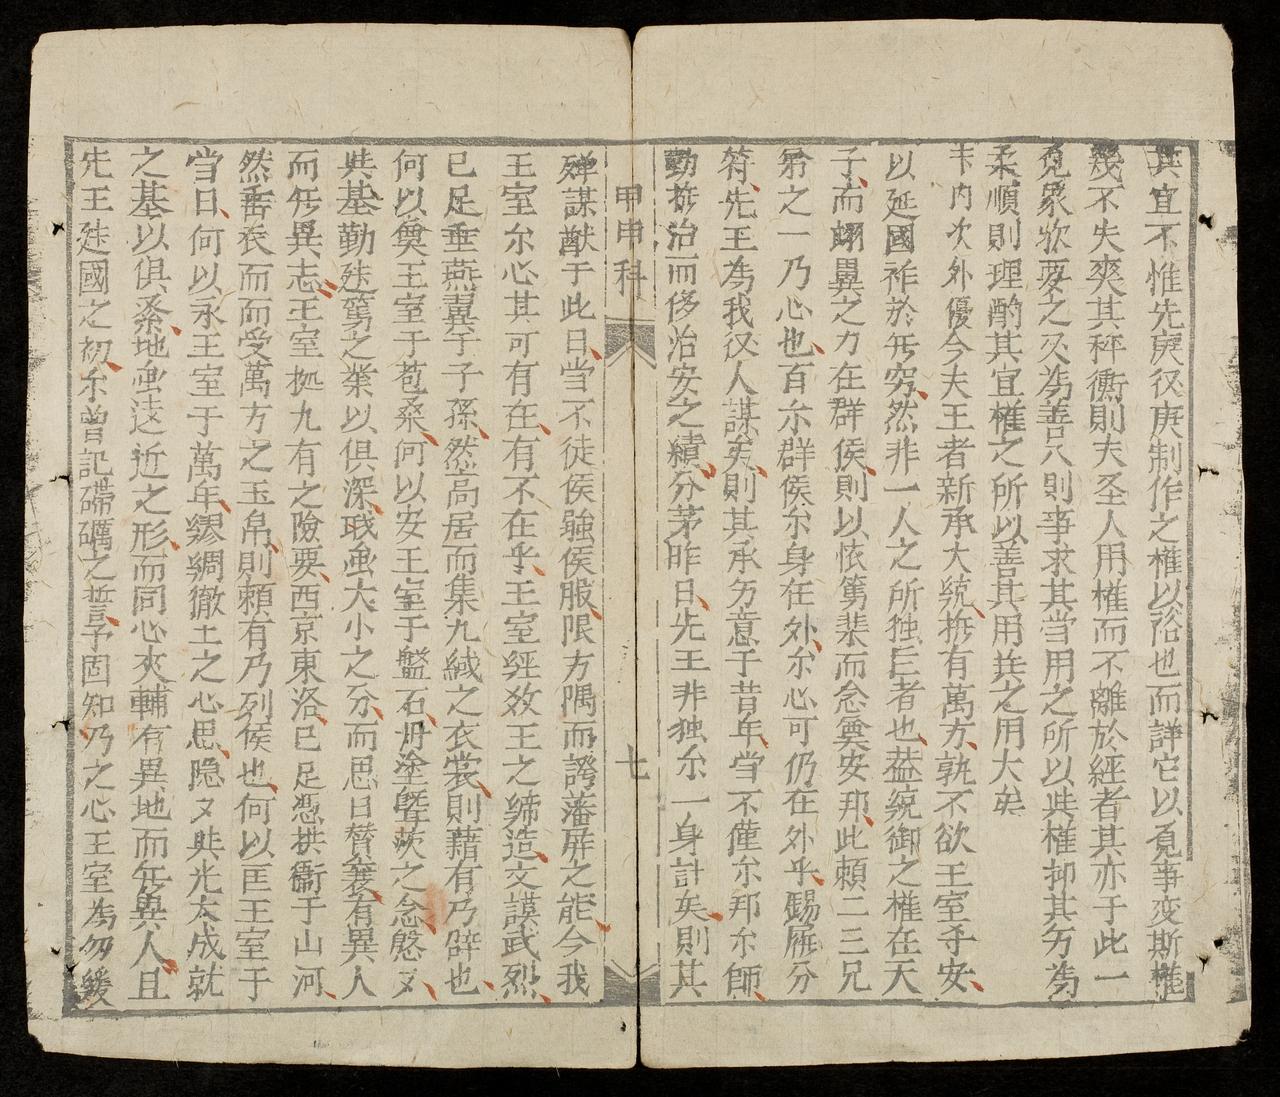 其宜不惟先庚后庚制作之權以裕也而詳它以覔事变斯權
幾不失爽其秤衡則夫圣人用權而不離於經者其亦于此一
覔象欤要之爻為善八則事求其當用之所以此權抑其为為
柔順則理酌其宜權之所以善其用此之用大矣
内次外優今夫王者新承大統撫有萬方孰不欲王室乎安
以延國祚於無窮然非一人之所独巨者也蓋統御之權在天
子而翊翼之力在群侯則以依篤棐而念奠安邦此頼二三兄
第之一乃心也百尔群侯尔身在外尔心可仍在外乎賜雁分
符先王為我后人謀矣則其承为意于昔年當不僅尔邦尔師
勤撫治而侈治安之績分茅昨日先王非独尔一身計矣則其
甲申科
七
殫謀猷于此日當不徒侯疆侯服限方隅而誇藩屏之能今我
王室尔心其可有在有不在乎王室經效王之締造文謨武烈
已足垂燕翼于子孫然高居而集九緎之衣裳則藉有乃辟也
何以奠王室于苞桑何以安王室于盤石丹塗曁茨之念慇又
共基勤廸篤之業以俱深戝虽大小之分而思日賛襄有異人
而無異志王室抛九有之險要西京東洛已足憑拱衞于山河
然垂衣而受萬方之玉帛則頼有乃列侯也何以匡王室于
當日何以永王室于萬年繆綢徹土之心思隐又與光大成就
之基以俱系地虽远近之形而同心夾輔有異地而無異人且
先王廸國之初尔曾記礪之誓予固知乃之心王室為匆緩